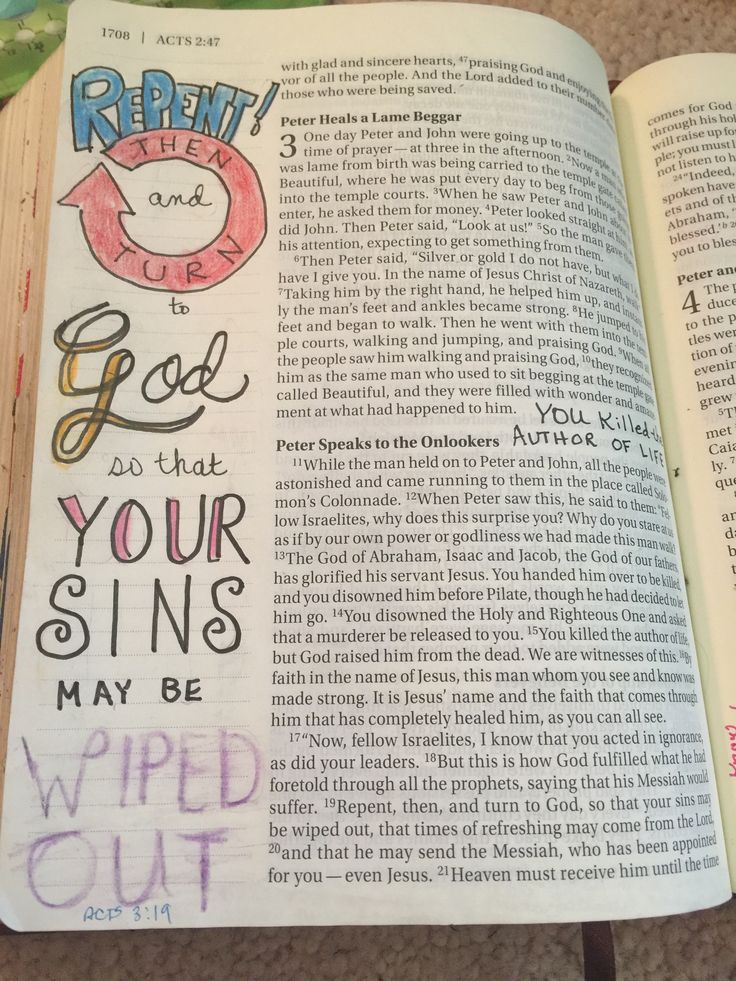 1708 | ACTS 2:47
REPENT!
THEN
and
TURN
to
God
so that
YOUR
SINS
MAY BE
WIPED
OUT
ACTS 3:19
with glad and sincere hearts, 47praising God and enjoying the
vor of all the people. And the Lord added to their number
those who were being saved.
Peter Heals a Lame Beggar
3 One day Peter and John were going up to the temple
time of prayer — at three in the afternoon. 2Now a
was lame from birth was being carried to the temple gate
Beautiful, where he was put every day to beg from those
into the temple courts. 3When he saw Peter and John about
enter, he asked them for money. 4Peter looked straight at
did John. Then Peter said, "Look at us!" 5So the man gave
his attention, expecting to get something from them.
6Then Peter said, "Silver or gold I do not have, but what
have I give you. In the name of Jesus Christ of Nazareth,
7Taking him by the right hand, he helped him up, and
ly the man's feet and ankles became strong. 8He jumped to
feet and began to walk. Then he went with them into the
ple courts, walking and jumping, and praising God. 9When
the people saw him walking and praising God, 10they recognized
him as the same man who used to sit begging at the temple gate
called Beautiful, and they were filled with wonder and
ment at what had happened to him.
YOU Killed the
AUTHOR OF LIFE
Peter Speaks to the Onlookers
11While the man held on to Peter and John, all the people were
astonished and came running to them in the place called Solo-
mon's Colonnade. 12When Peter saw this, he said to them: "Fel-
low Israelites, why does this surprise you? Why do you stare at us
as if by our own power or godliness we had made this man walk?
13The God of Abraham, Isaac and Jacob, the God of our fathers,
has glorified his servant Jesus. You handed him over to be killed,
and you disowned him before Pilate, though he had decided to let
him go. 14You disowned the Holy and Righteous One and asked
that a murderer be released to you. 15You killed the author of life,
but God raised him from the dead. We are witnesses of this. 16By
faith in the name of Jesus, this man whom you see and know was
made strong. It is Jesus' name and the faith that comes through
him that has completely healed him, as you can all see.
17"Now, fellow Israelites, I know that you acted in ignorance,
as did your leaders. 18But this is how God fulfilled what he had
foretold through all the prophets, saying that his Messiah would
suffer. 19Repent, then, and turn to God, so that your sins may
be wiped out, that times of refreshing may come from the Lord,
20and that he may send the Messiah, who has been appointed
for you — even Jesus. 21Heaven must receive him until the time
comes for God
through his hol
will raise up for
ple; you must l
not listen to h
24"Indeed,
spoken have
ets and of th
Abraham, "
blessed.'b
you to bless
Peter an
4 The p
duce
to the p
tles wer
tion of
evenin
heard
grew
5Th
met
Caia
ly. 7
que